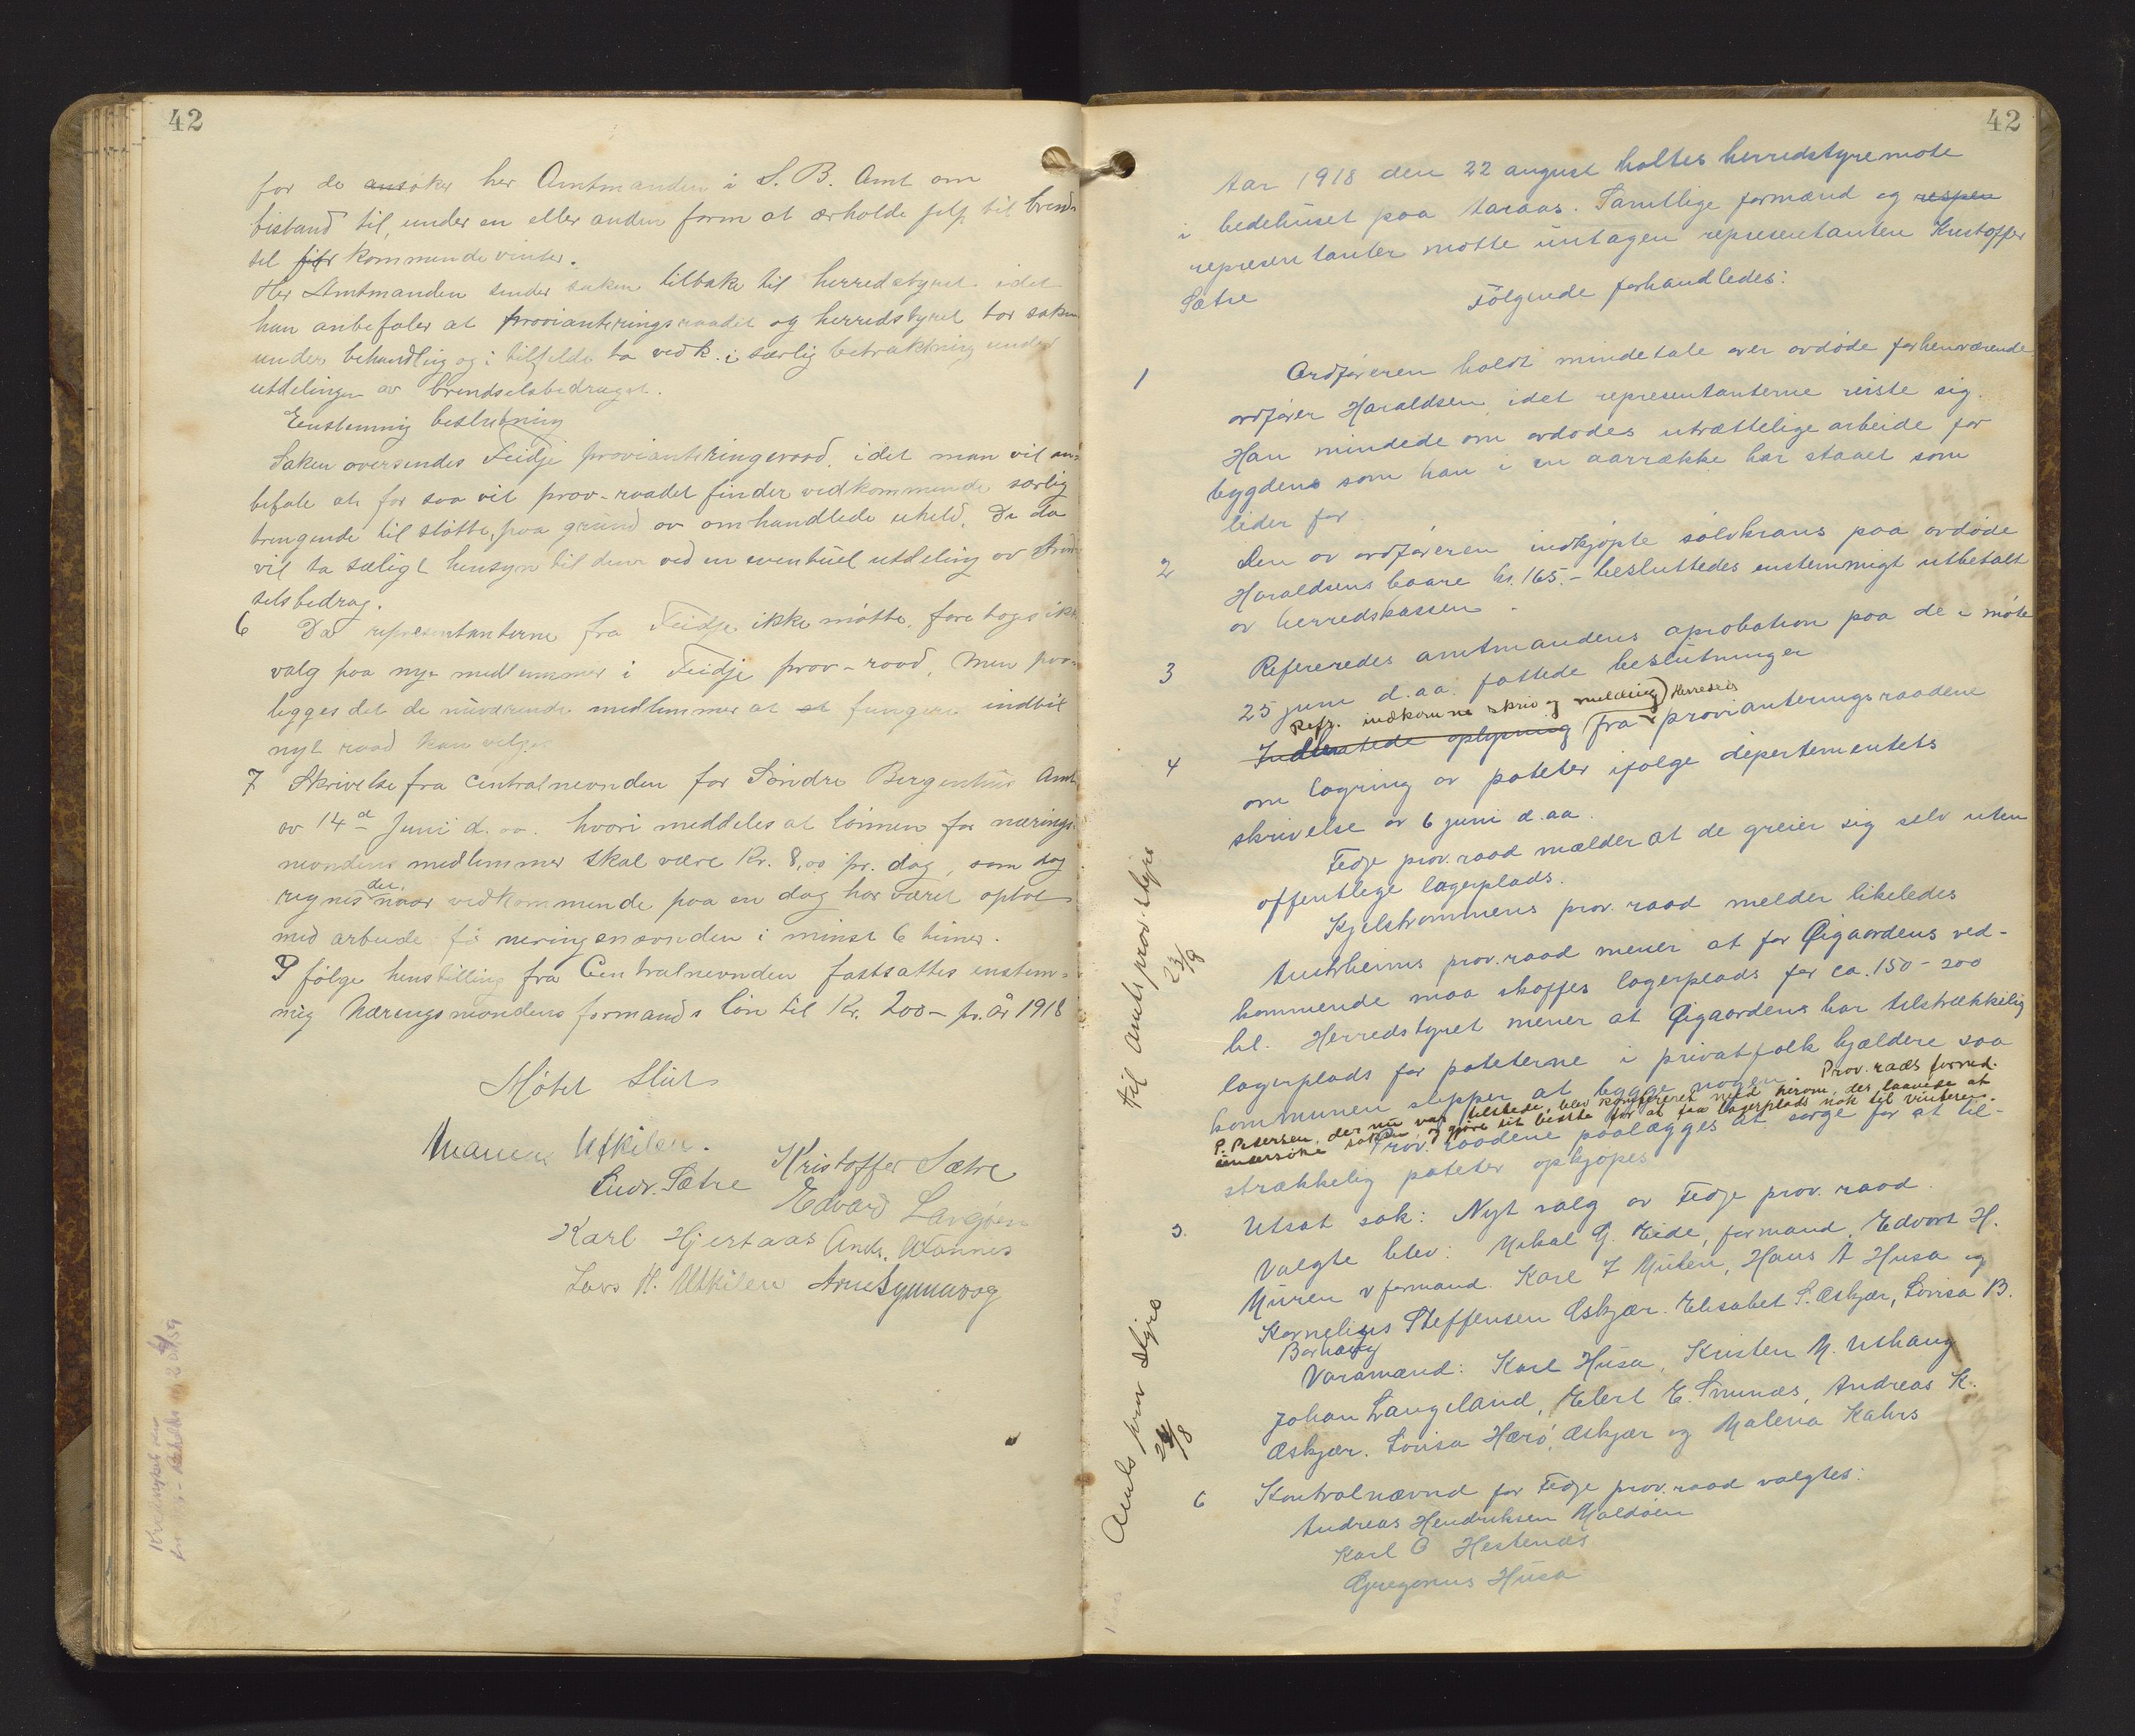 42
for de ansøker her Amtmanden i S. B. Amt om
bistand til, under en eller anden form at erholde hjelp til brend-
sel for kommende vinter.
Her Amtmanden sender saken tilbake til herredstyret idet
han anbefaler at provianteringsraadet og herredstyret tar saken
under behandling og i tilfelde ta vedk. i særlig betraktning under
utdelingen av brendselsbedraget.
Enstemmig beslutning
Saken oversendes Feidje provianteringsraad, idet man vil an-
befale at for saa vit prov-raadet finder vedkommende særlig
trengende til støtte, paa grund av omhandlede uheld. De da
vil ta særligt hensyn til dem ved en eventuel utdeling av brend-
selsbedrag.
6 Da representanterne fra Feidje ikke møtte, foretoges ikke
valg paa nye medlemmer i Feidje prov-raad, men paa-
legges det de nuværende medlemmer at fungere indtil
nyt raad kan velges
7 Skrivelse fra Centralnevnden for Søndre Bergenhus Amt
av 14de Juni d. aa. hvori meddeles at lønnen for nærings
nevndens medlemmer skal være Kr. 8,00 pr. dag, som dag
regnes det, naar vedkommende paa en dag har været optat
med arbeide få neringsnevnden i minst 6 timer.
I følge henstilling fra Centralnevnden fastsattes enstem-
mig Næringsnevndens formands løn til Kr. 200- pr. År 1918
Møtet Slut
Utkilen.
Kristoffer Sætre
Andr. Sætre
Edvard Langøen
Karl Hjertaas Andr. Wannes
Lars H. Utkilen Arne Synnevaag
42
Aar 1918 den 22 august holtes herredstyremøte
i bedehuset paa Aaraas. Samtlige formænd og respen
representanter møtte untagen representanten Kristoffer
Sætre Følgende forhandledes:
1 Ordføreren holdt mindetale over avdøde forhenværende
ordfører Haraldsen, idet representanterne reiste sig.
Han mindede om avdødes utrættelige arbeide for
bygdens som han i en aarrække har staaet som
leder for.
2 Den av ordføreren indkjøpte sølvkrans paa avdøde
Haraldsens baare kr. 165.- besluttedes enstemmigt utbetalt
av herredskassen.
3 Refereredes amtmandens aprobation paa de i møte
25 juni d.aa. fattede beslutninger
Refr. indkomne skriv og melding) Herredets
4 oplysning fra provianteringsraadene
om lagring av poteter ifølge departementets
skrivelse av 6 juni d.aa.
Fedje prov. raad mælder at de greier sig selv uten
offentlege lagerplads.
Kjelstrømmens prov. raad melder likeledes
Austrheims prov. raad mener at for Øigaardens ved-
kommende maa skaffes lagerplads for ca. 150 - 200
hl. Herredstyret mener at Øigaardens har tilstrækkelig
lagerplads for poteterne i privatfolk kjældere saa
kommunen slipper at bygge nogen. Prov. raads formd.
P. Petersen, der nu var tilstede, blev konfereret med herom, der lovede at
undersøke saken og gjøre sit beste for at faa lagerplads nok til vinteren.
Prov. raadene paalægges at sørge for at til-
strækkelig poteter opkjøpes
5. Utsat sak: Nyt valg av Fedje prov. raad.
Valgte blev: Mikal G. Eide, formand, Edvart H.
Muren v formand. Karl J Mulen, Hans A Husa og
Kornelius Steffensen Æskjær. Elisabet S. Æskjær, Lovisa B.
Varamænd: Karl Husa, Kristen M. Uthaug
Johan Langeland, Elert E. Smines, Andreas K.
Æskjær. Lovisa Hærø, Æskjær og Malena Kahrs
6 Kontrolnævnd for Fedje prov. raad valgtes:
Andreas Hendriksen Moldøen
Karl O Hestenæs
Gregorius Husa
til Amts prov. styre
23/8
Amts prov styre
24/8